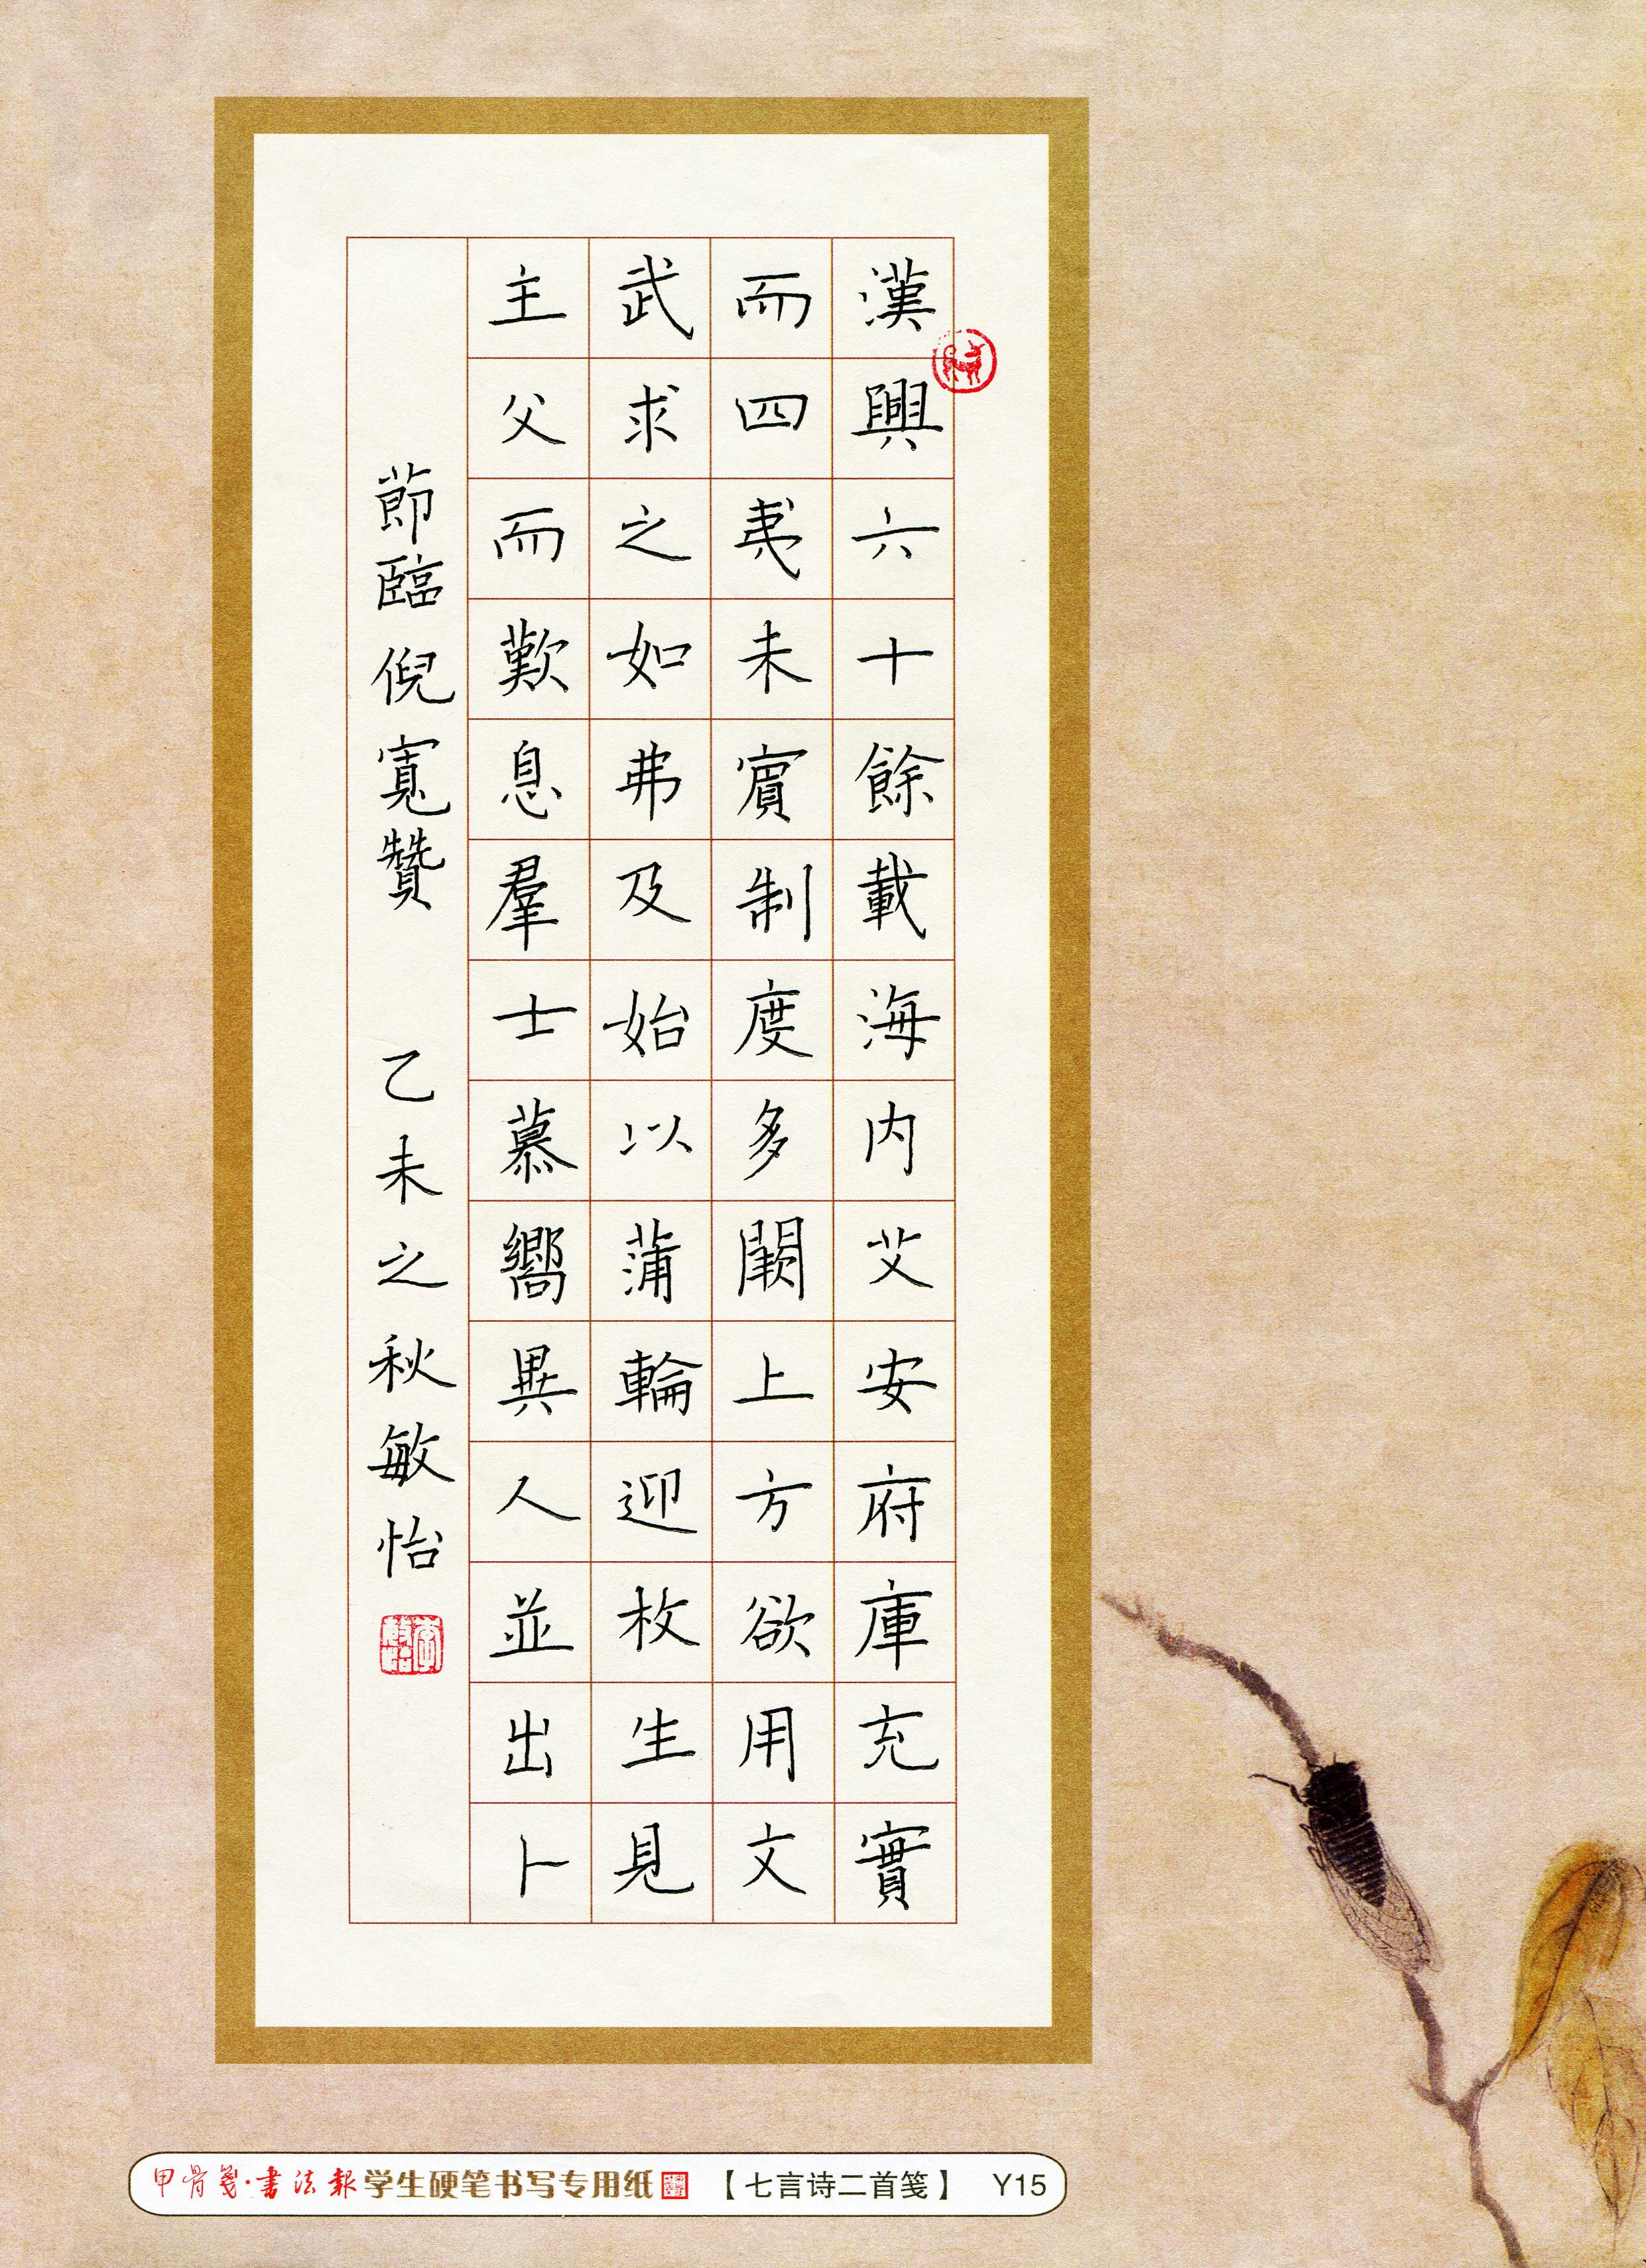 漢興六十餘載海内艾安府庫充實
而四夷未賔制度多闕上方欲用文
武求之如弗及始以蒲輪迎枚生見
主父而歎息羣士慕嚮異人並出卜
莭臨倪寬贊 乙未之秋敏怡
甲骨箋·書法報学生硬笔书写专用纸【七言诗二首笺】 Y15